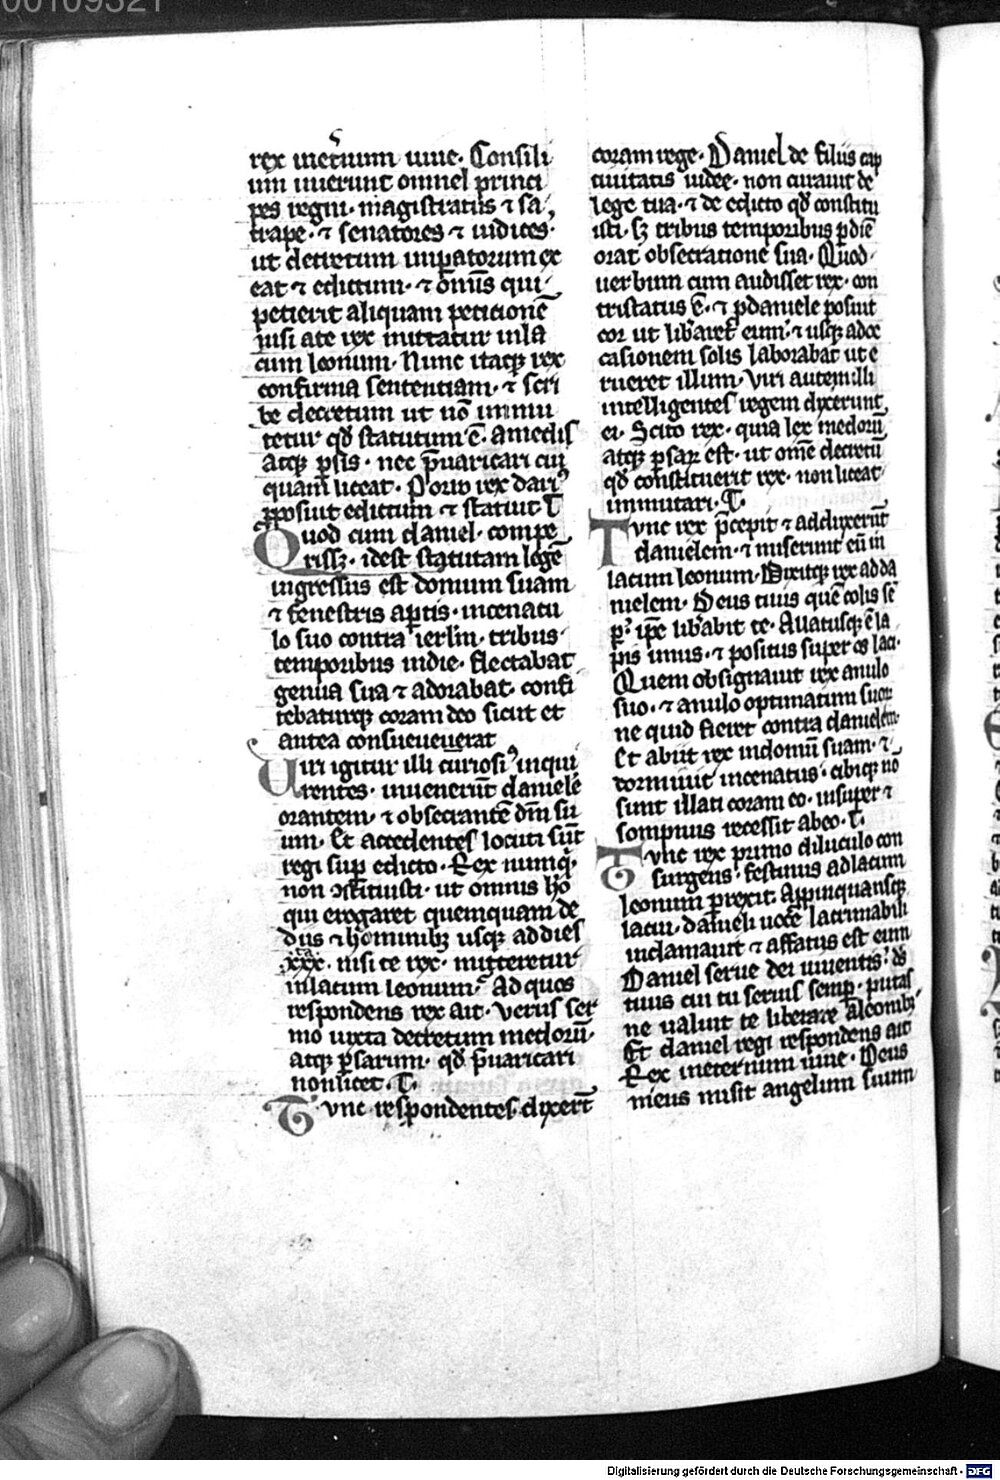 00109321
rex inet̾num uiue. Consili
um inierunt omnes princi
pes regni. magistratus ⁊ sa
trape. ⁊ senatores ⁊ iudices.
ut decretum imp̱atorum ex
eat ⁊ edictum. ⁊ om̄is qui
petierit aliquam peticionē
nisi a te rex mittatur in la
cum leonum. Nunc itaqꝫ rex
confirma sententiam. ⁊ scri
be decretum ut nō immu
tetur qd̄ statutum ē. a medis
atqꝫ ꝑsis. nec p̄uaricari cui
quam liceat. Porro rex dariꝰ
ꝓposuit edictum ⁊ statuit. T
Quod cum daniel. compe
rissꝫ. idest statutam legē
ingressus est domum suam
⁊ fenestris aꝑtis. in cenacu
lo suo contra ierl̄m. tribus
temporibus in die. flectabat
genua sua ⁊ adorabat. confi
tebaturqꝫ coram deo sicut et
antea consueuerat
Uiri igitur illi curiosiꝰ inqui
rentes. inuenerūt danielē
orantem. ⁊ obsecrantē dm̄ su
um. Et accedentes locuti sūt
regi suꝑ edicto. Rex numqͥd
non ↄstituisti. ut omnis hō
qui erogaret quemquam de
diis ⁊ hominibꝫ usqꝫ ad dies
xxx. nisi te rex. mitteretur
in lacum leonum. Ad quos
respondens rex ait. Verus ser
mo iuxta decretum medorū.
atqꝫ ꝑsarum. qd̄ p̄uaricari
non licet. T.
Tunc respondentes. dixerūt
coram rege. Daniel de filiis cap
tiuitatis iudee. non curauit de
lege tua. ⁊ de edicto qd̄ constitu
isti. sꝫ tribus temporibus ꝑ diē
orat obsecratione sua. Quod
uerbum cum audisset rex. con
tristatus ē. ⁊ ꝓ daniele posuit
cor ut lib̾aret eum. ⁊ usqꝫ ad oc
casionem solis laborabat ut e
rueret illum. Viri autem illi
intelligentes regem dixerunt
ei. Scito rex. quia lex medorū
atqꝫ ꝑsaꝝ est. ut om̄e decretū
qd̄ constituerit rex. non liceat
immutari. T.
Tunc rex p̄cepit ⁊ adduxerūt
danielem. ⁊ miserunt eū in
lacum leonum. Dixitqꝫ rex ad da
nielem. Deus tuus quē colis sē
ꝑ. ip̄e lib̾abit te. Allatusqꝫ ē la
pis unus. ⁊ positus super os laci.
Quem obsignauit rex anulo
suo. ⁊ anulo optimatum suoꝝ
ne quid fieret contra danielem
Et abiit rex in domū suam. ⁊
dormiuit incenatus. cibiqꝫ nō
sunt illati coram eo. insuper ⁊
sompnus recessit ab eo. T.
Tunc rex primo diluculo con
surgens. festinus ad lacum
leonum ꝑrexit. Appinquansqꝫ
lacui. danieli uoce lacrimabili
inclamauit ⁊ affatus est eum
Daniel serue dei uiuentis. ds̄
tuus cui tu seruis semꝑ. putas
ne ualuit te liberare a leonibꝫ.
Et daniel regi respondens ait
Rex ineternum uiue. Deus
meus misit angelum suum
Digitalisierung gefördert durch die Deutsche Forschungsgemeinschaft - DFG